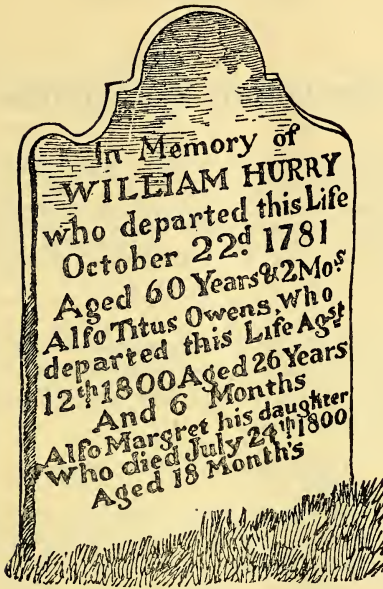 In Memory of
WILLIAM HURRY
who departed this Life
October 22d 1781
Aged 60 Years & 2 Mos
Alſo Titus Owens, Who
departed this Life Agst
12th 1800 Aged 26 Years
And 6 Months
Alſo Margret his daughter
Who died July 24th 1800
Aged 18 Month's